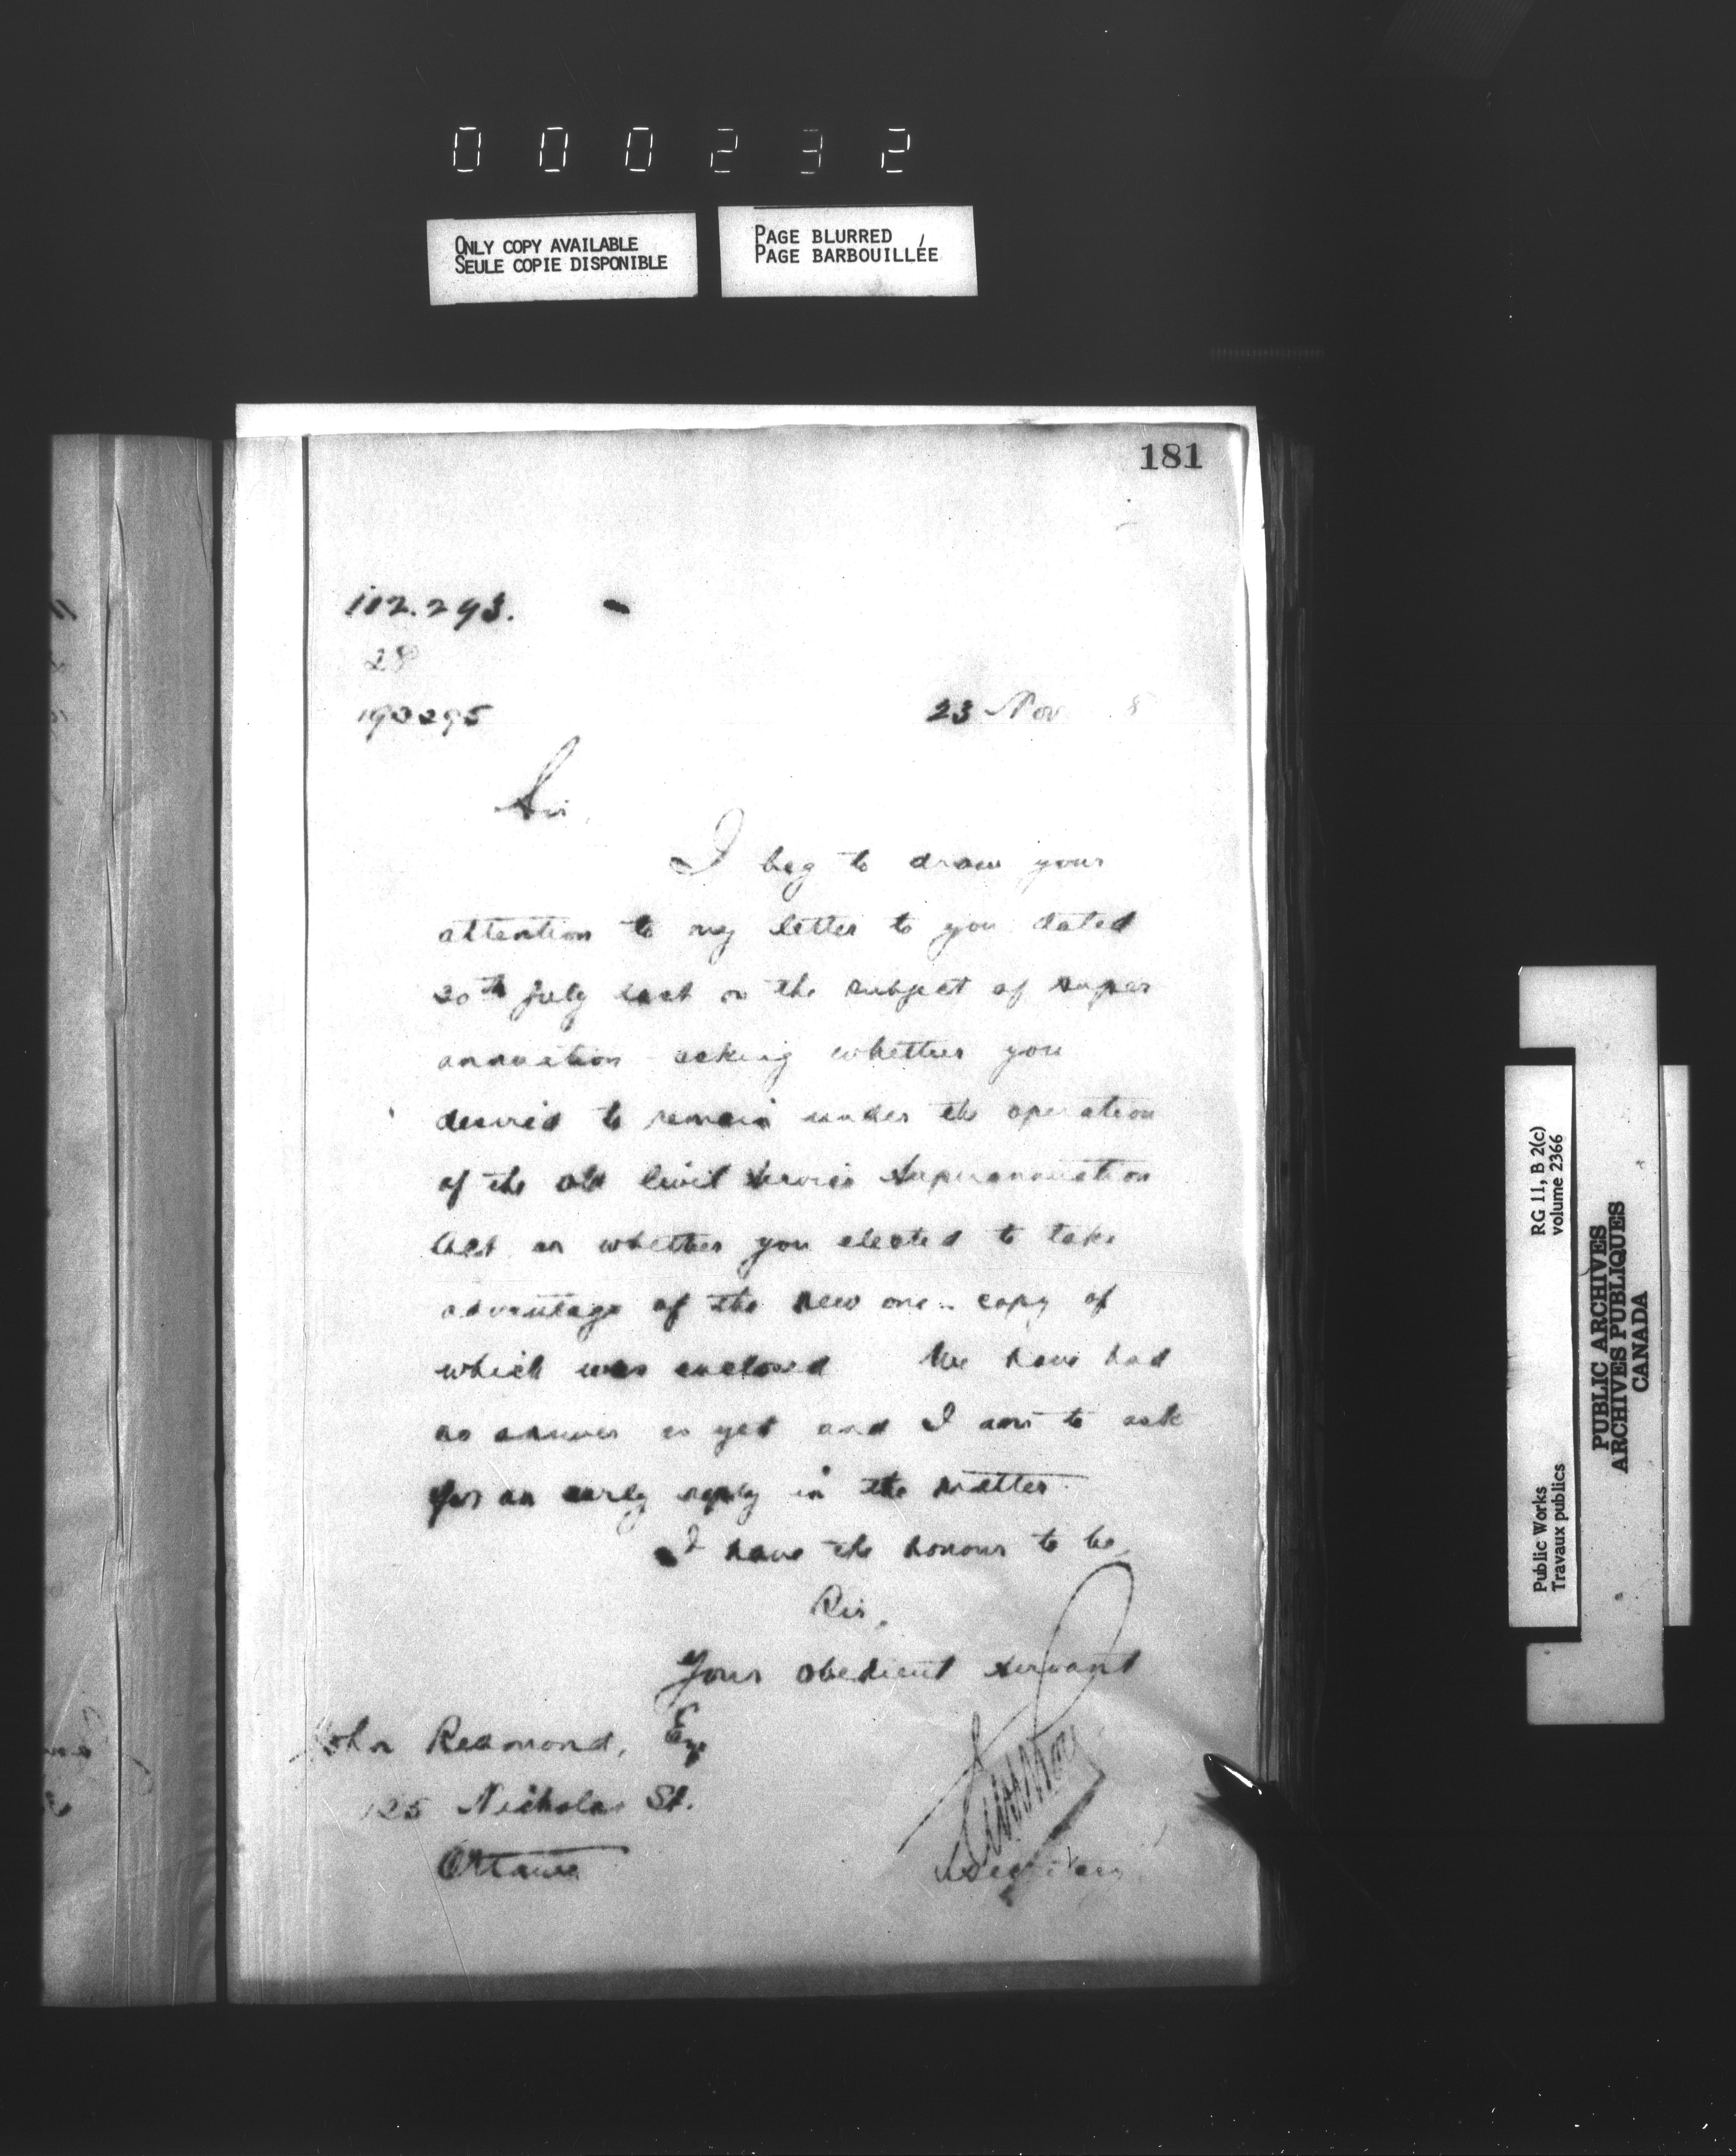 000232
ONLY COPY AVAILABLE
SEULE COPIE DISPONIBLE
PAGE BLURRED
PAGE BARBOUILLÉE
181
112.293.
28
190295
23 Nov 8
Sir,
I beg to draw your
attention to my letter to you dated
20th July last on the subject of super
annuation asking whether you
desired to remain under the operation
of the old Civil Service Superannuation
Act or whether you elected to take
advantage of the new one - copy of
which was enclosed We have had
no answer as yet and I am to ask
for an early reply in the matter.
I have the honour to be,
Sir,
Your obedient servant
John Redmond, Esq
125 Nicholas St.
Ottawa
Secretary
Public Works
Travaux publics
RG 11, B 2(c)
volume 2366
PUBLIC ARCHIVES
ARCHIVES PUBLIQUES
CANADA